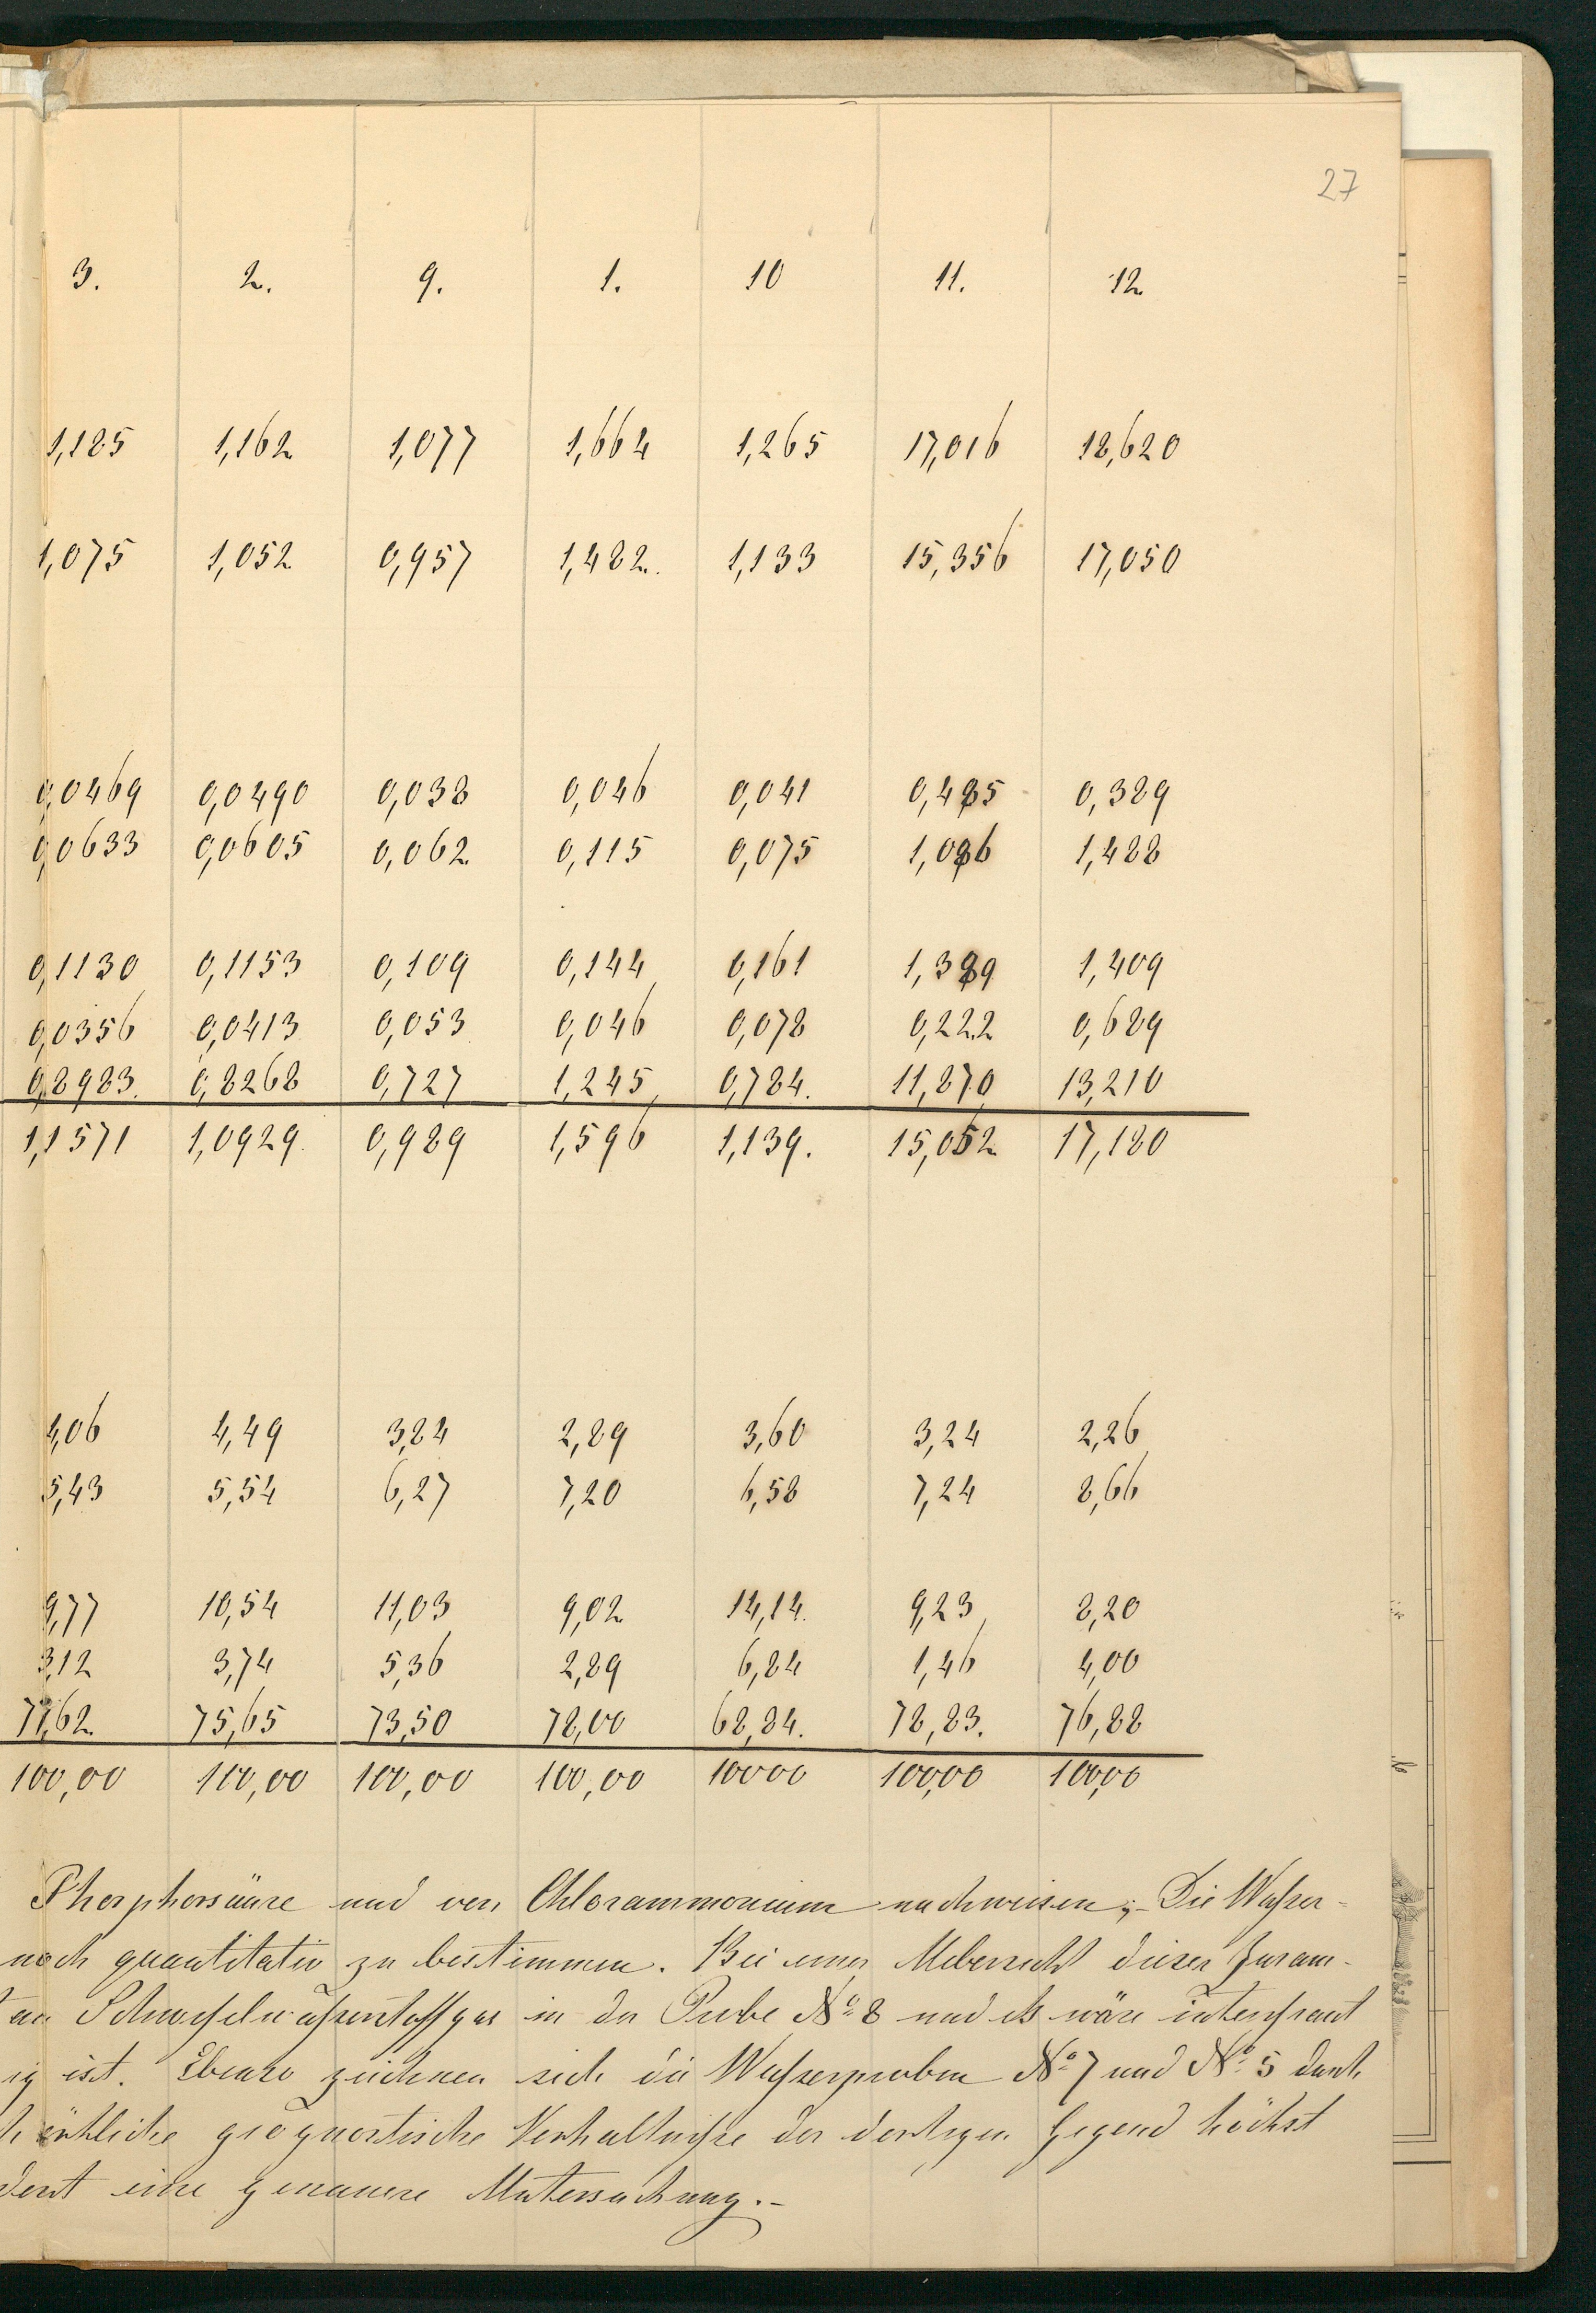 27
3. 2. 9. 1. 10 11. 12
1,185 1,162 1,077 1,664 1,265 17,016 18,620
1,075 1,052 0,957 1,482. 1,133 15,356 17,050
0,0469 0,0490 0,038 0,046 0,041 0,485 0,389
0,0633 0,0605 0,062 0,115 0,075 1,086 1,488
0,1130 0,1153 0,109 0,144 0,161 1,389 1,409
0,0356 0,0413 0,053 0,046 0,078 0,222 0,689
0,8983. 0,8268 0,727 1,245 0,784. 11,870 13,210
1,1571 1,0929 0,989 1,596 1,139. 15,052 17,180
4,06 4,49 3,84 2,89 3,60 3,24 2,26
5,43 5,54 6,27 7,20 6,58 7,24 8,66
9,77 10,54 11,03 9,02 14,14. 9,23 8,20
3,12 3,74 5,36 2,89 6,84 1,46 4,00
77,62. 75,65 73,50 78,00 68,84. 78,83. 76,88
100,00 100,00 100,00 100,00 10000 100,00 100,00
Phosphorsäure und von Chlorammonium nachweisen; Die Wasser-
noch quantitativ zu bestimmen. Bei einer Uebersicht dieser Zusam-
an Schwefelwasserstoffgas in der Probe No 8 und es wäre interessant
ig ist. Ebenso zeichnen sich die Wasserproben No 7 und No 5 durch
geognostische Verhältnisse der dortigen Gegend höchst
dient eine genauere Untersuchung.-